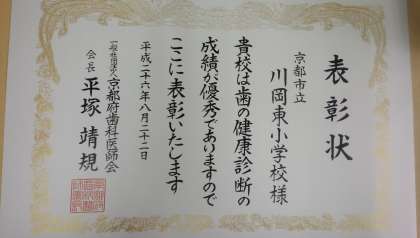 表彰状
京都市立
川岡東小学校様
貴校は歯の健康診断の
成績が優秀でありますので
ここに表彰いたします
平成二十六年八月二十二日
一般社団法人 京都府歯科医師会
会長 平塚靖規